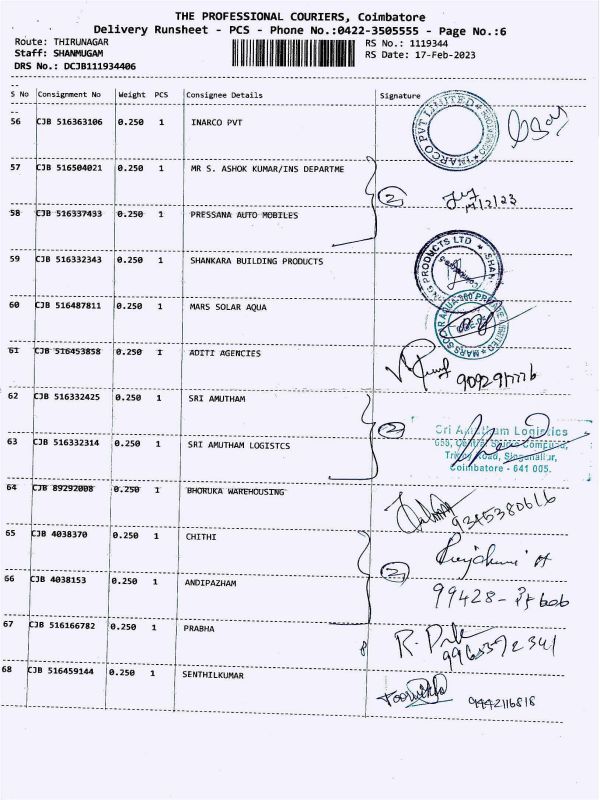 THE PROFESSIONAL COURIERS, Coimbatore
Delivery Runsheet - PCS - Phone No.:0422-3505555 - Page No.:6
Route: THIRUNAGAR RS No.: 1119344
Staff: SHANMUGAM RS Date: 17-Feb-2023
DRS No.: DCJB111934406
S No Consignment No Weight PCS Consignee Details Signature
56 CJB 516363106 0.250 1 INARCO PVT
INARCO PVT LIMITED
57 CJB 516504021 0.250 1 MR S. ASHOK KUMAR/INS DEPARTME
2
17/2/23
58 CJB 516337433 0.250 1 PRESSANA AUTO MOBILES
59 CJB 516332343 0.250 1 SHANKARA BUILDING PRODUCTS
PRODUCTS LTD
60 CJB 516487811 0.250 1 MARS SOLAR AQUA
61 CJB 516453858 0.250 1 ADITI AGENCIES
62 CJB 516332425 0.250 1 SRI AMUTHAM
2
Sri Amutham Logistics
63 CJB 516332314 0.250 1 SRI AMUTHAM LOGISTCS
Road, Singanallur,
Coimbatore - 641 005.
64 CJB 89292008 0.250 1 BHORUKA WAREHOUSING
9345380616
65 CJB 4038370 0.250 1 CHITHI
2
66 CJB 4038153 0.250 1 ANDIPAZHAM
99428-
67 CJB 516166782 0.250 1 PRABHA
68 CJB 516459144 0.250 1 SENTHILKUMAR
9442116818